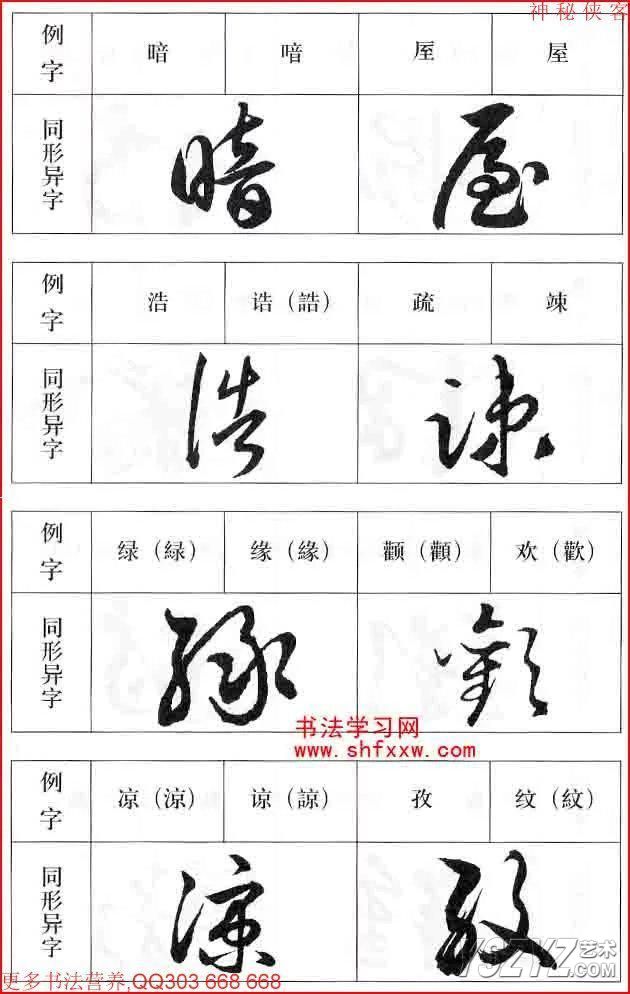 神秘侠客
例字 暗 喑 厔 屋
同形异字
例字 浩 诰（誥） 疏 竦
同形异字
例字 绿（緑） 缘（緣） 颧（顴） 欢（歡）
同形异字
书法学习网
www.shfxxw.com
例字 凉（涼） 谅（諒） 孜 纹（紋）
同形异字
YSZYZ艺术
.com
更多书法营养,QQ303 668 668